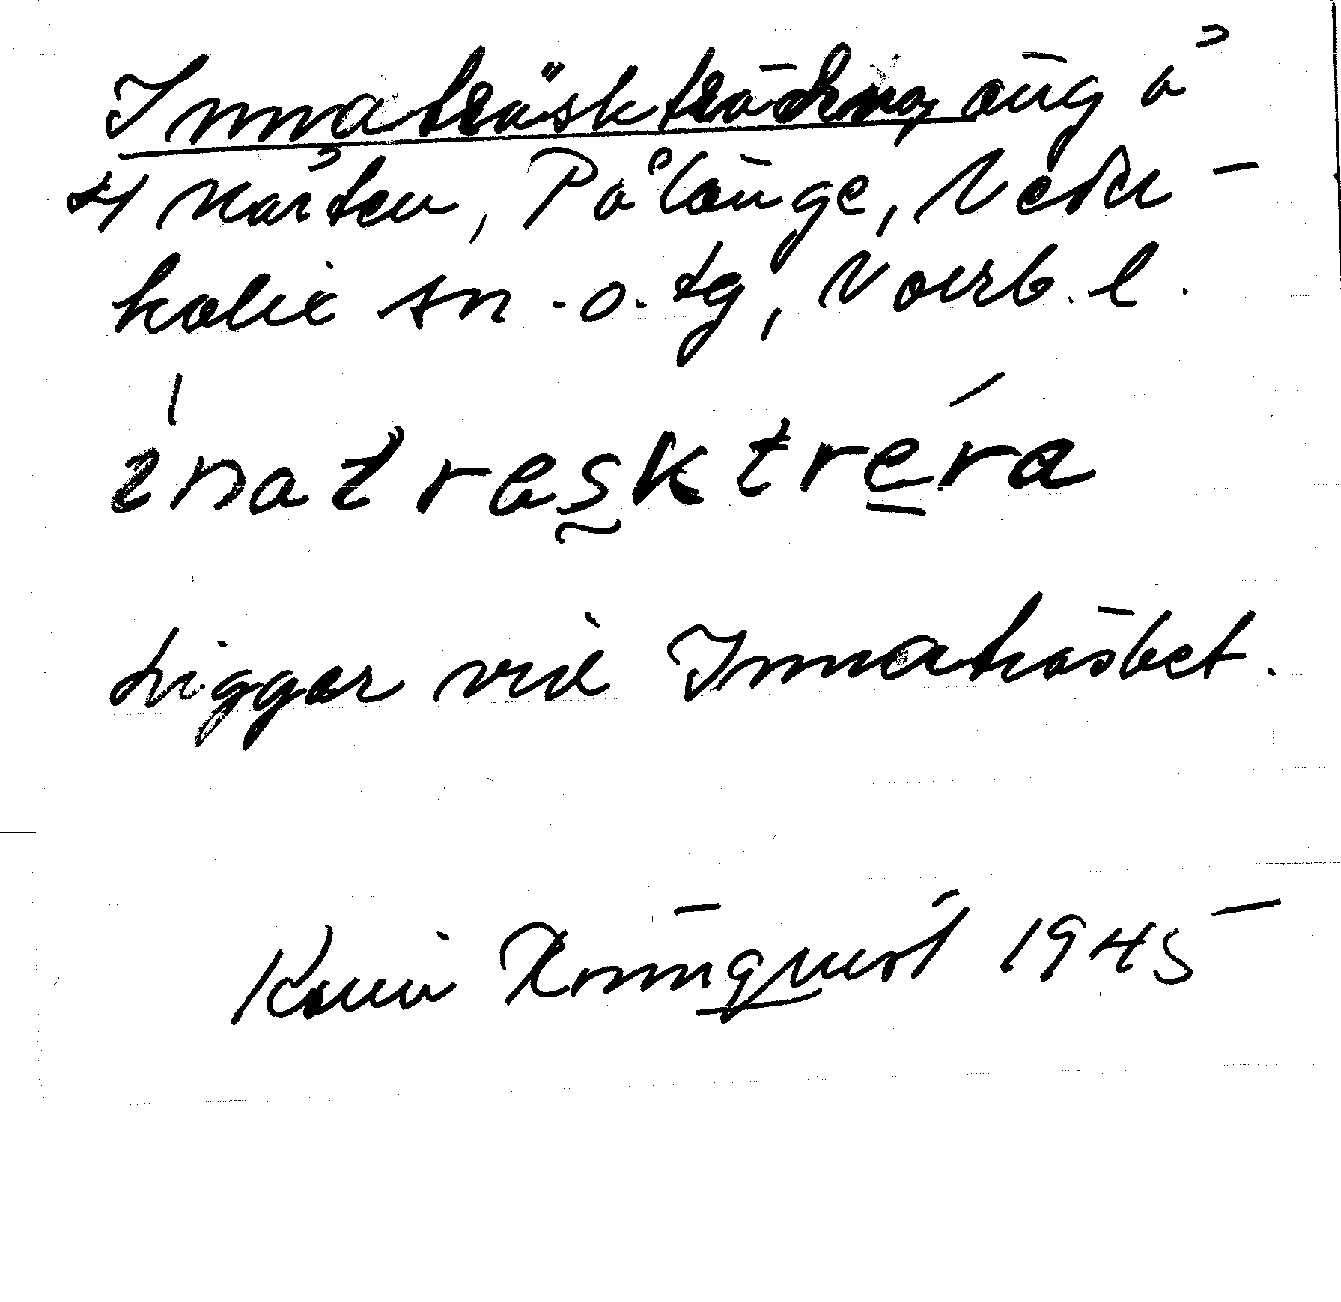 Innaträskträdorna, äng å
4 kärten, Pålänge, Neder-
kalix sn. o. tg, Norrb. l.
ínatrask̰tre̱ra
Ligger vid Innaträsket.
Karin Rönnqvist 1945